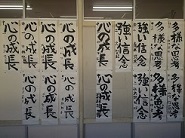 多様な思考
多様な思考
強い信念
心の成長
心の成長
心の成長
心の成長
多様な思考
多様な思考
強い信念
心の成長
心の成長
心の成長
心の成長